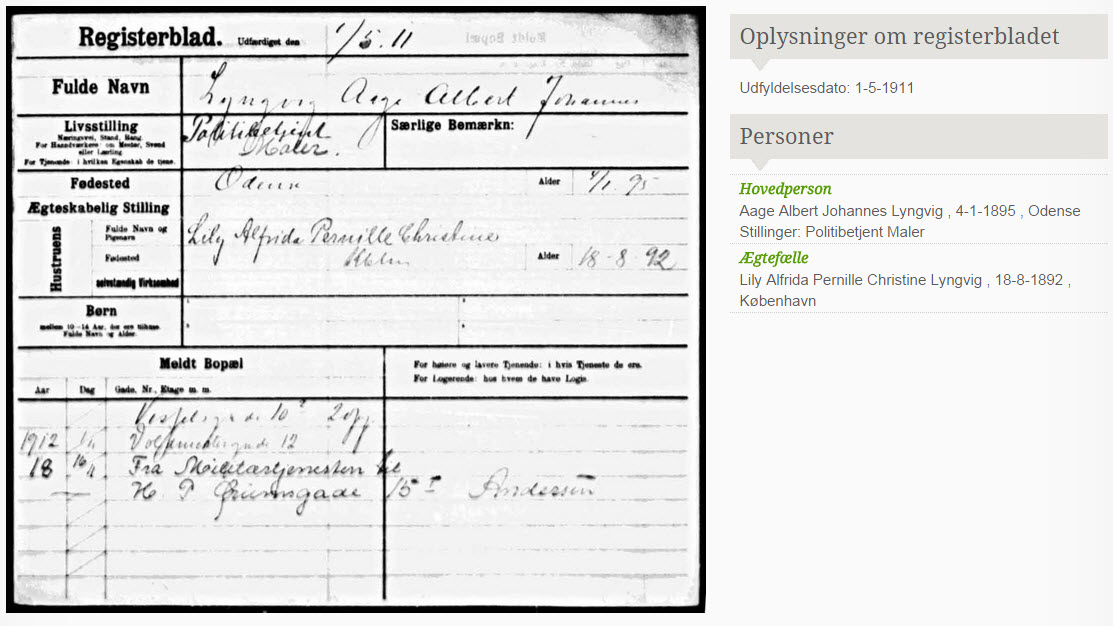 Registerblad. Udfærdiget den 1/5. 11
Fulde Navn Lyngvig Aage Albert Johannes
Livsstilling
Næringsvej, Stand, Rang.
For Haandværkere: om Mester, Svend
eller Lærling
For Tjenende: i hvilken Egenskab de tjene.
Politibetjent
Maler.
Særlige Bemærkn:
Fødested Odense Alder 4/1 95
Ægteskabelig Stilling
Hustruens
Fulde Navn og
Pigenavn
Lily Alfrida Pernille Christine
Fødested Kbhn Alder 18-8-92
selvstændig Virksomhed
Børn
mellem 10-14 Aar, der ere tilhuse.
Fulde Navn og Alder.
Meldt Bopæl
For høiere og lavere Tjenende: i hvis Tjeneste de ere.
For Logerende: hos hvem de have Logis.
Aar Dag Gade, Nr., Etage m. m.
10 2
1912 12
18 Fra Militærtjenesten til
H P Ørumsgade 15 I Andersen
Oplysninger om registerbladet
Udfyldelsesdato: 1-5-1911
Personer
Hovedperson
Aage Albert Johannes Lyngvig , 4-1-1895 , Odense
Stillinger: Politibetjent Maler
Ægtefælle
Lily Alfrida Pernille Christine Lyngvig , 18-8-1892 ,
København